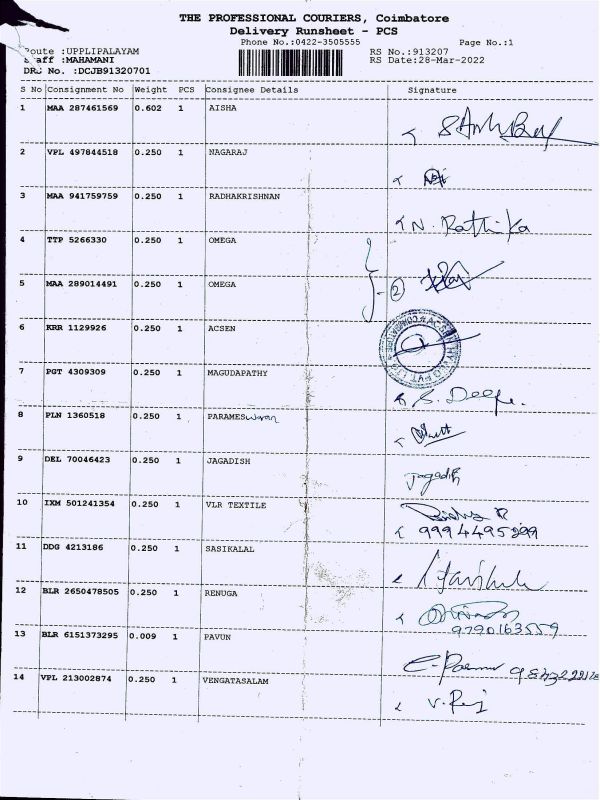 THE PROFESSIONAL COURIERS, Coimbatore
Delivery Runsheet - PCS
Phone No.:0422-3505555 Page No.:1
Route :UPPLIPALAYAM RS No.:913207
Staff :MAHAMANI RS Date:28-Mar-2022
DRS No. :DCJB91320701
S No Consignment No Weight PCS Consignee Details Signature
1 MAA 287461569 0.602 1 AISHA
2 VPL 497844518 0.250 1 NAGARAJ
3 MAA 941759759 0.250 1 RADHAKRISHNAN N. Rathika
4 TTP 5266330 0.250 1 OMEGA
5 MAA 289014491 0.250 1 OMEGA 2
6 KRR 1129926 0.250 1 ACSEN
7 PGT 4309309 0.250 1 MAGUDAPATHY
8 PLN 1360518 0.250 1 PARAMESwaran
9 DEL 70046423 0.250 1 JAGADISH Jagadish
10 IXM 501241354 0.250 1 VLR TEXTILE
9994495299
11 DDG 4213186 0.250 1 SASIKALAL
12 BLR 2650478505 0.250 1 RENUGA
9790163559
13 BLR 6151373295 0.009 1 PAVUN
14 VPL 213002874 0.250 1 VENGATASALAM